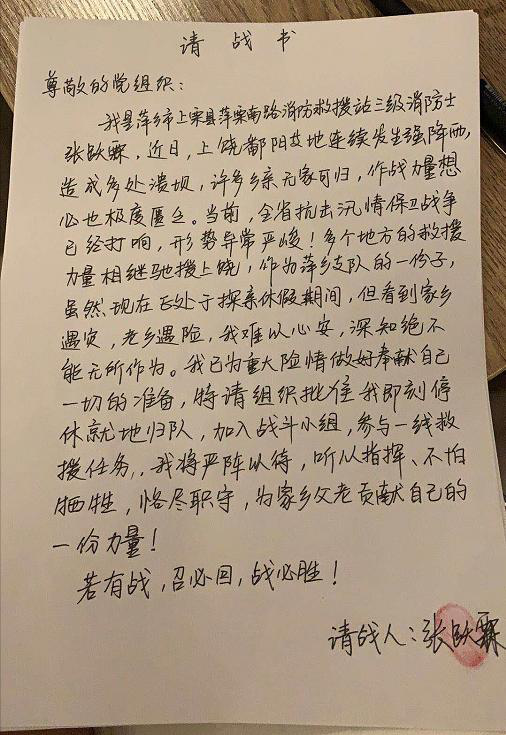 请战书
尊敬的党组织：
我是萍乡市上栗县萍栗南路消防救援站三级消防士
张跃霖，近日，上饶鄱阳等地连续发生强降雨，
造成多处溃坝，许多乡亲无家可归，作战力量想
必也极度匮乏。当前，全省抗击汛情保卫战争
已经打响，形势异常严峻！多个地方的救援
力量相继驰援上饶，作为萍乡支队的一份子，
虽然、现在正处于探亲休假期间，但看到家乡
遇灾，老乡遇险，我难以心安，深知绝不
能无所作为。我已为重大险情做好奉献自己
一切的准备，特请组织批准我即刻停
休就地归队，加入战斗小组，参与一线救
援任务，我将严阵以待，听从指挥、不怕
牺牲，恪尽职守，为家乡父老贡献自己的
一份力量！
若有战，召必回，战必胜！
请战人：张跃霖